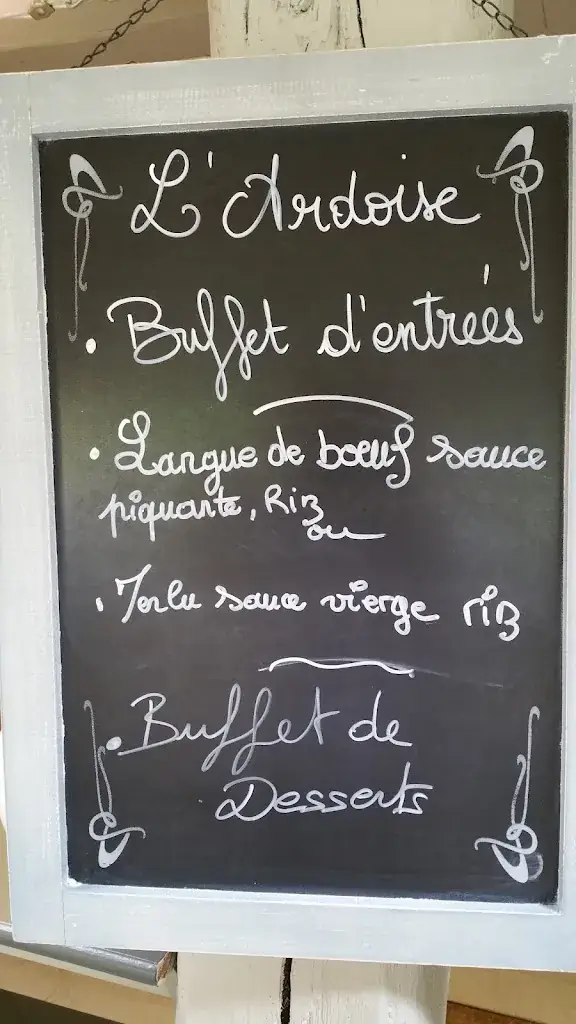 L'Ardoise
• Buffet d'entrées
• Langue de bœuf sauce
piquante, Riz
ou
• Merlu sauce vierge riz
• Buffet de
Desserts